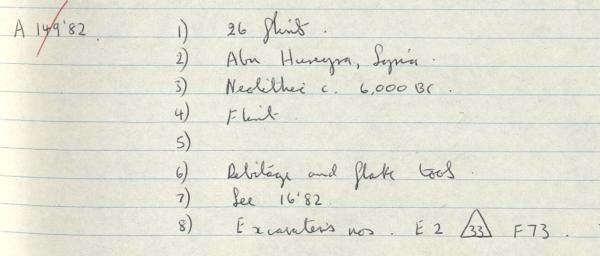 A 149'82. 1) 26 flint.
2) Abu Hureyra, Syria.
3) Neolithic c. 6,000 BC.
4) Flint.
5)
6) Debitage and flake tools.
7) See 16'82.
8) Excavator's nos. E 2 33 F 73.